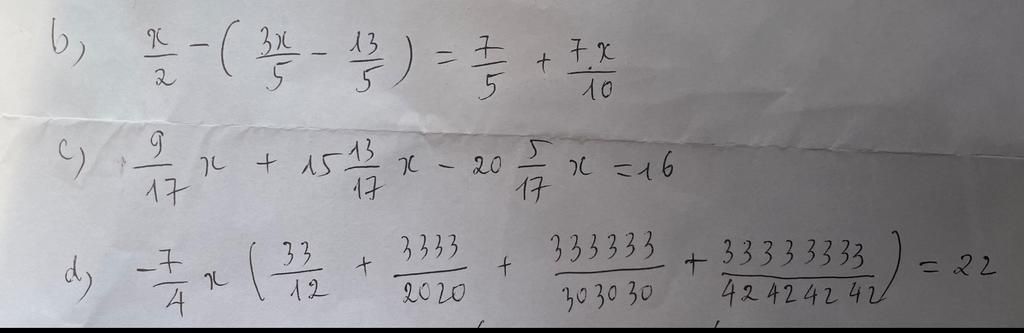 b, x/2 - ( 3x/5 - 13/5 ) = 7/5 + 7.x/10
c) 9/17 x + 15 13/17 x - 20 5/17 x = 16
d, -7/4 x ( 33/12 + 3333/2020 + 333333/303030 + 33333333/42424242 ) = 22